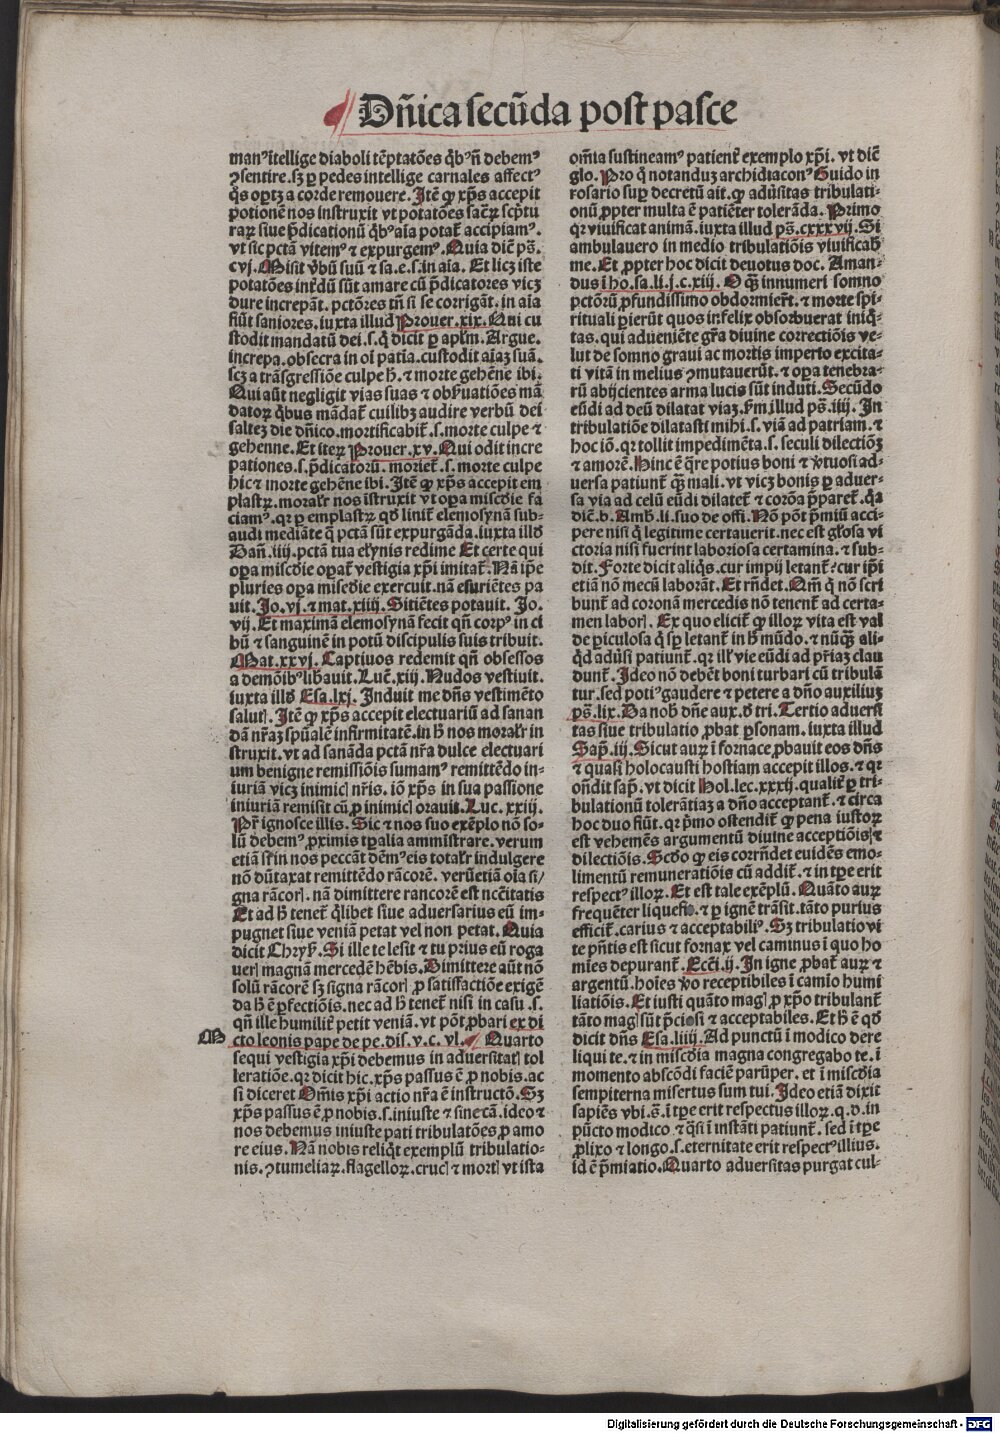 Dñica secūda post pasce
manꝰ ītellige diaboli tẽptatões q̃bꝰ ñ debemꝰ
ꝯsentire. sꝫ ꝑ pedes intellige carnales affectꝰ
q̃s oportꝫ a corde remouere. Itẽ ꝙ xp̃s accepit
potionẽ nos instruxit vt potatões sacẽꝝ scp̃tu
raꝝ siue p̃dicationũ q̃bꝰ aĩa potat᷑ accipiamꝰ.
vt sic pctã vitemꝰ ⁊ expurgemꝰ. Quia diẽ pš.
cvj. Misit v̓bũ suũ ⁊ sa. e. s. in aĩa. Et licꝫ iste
potatões interdũ sũt amare cũ p̃dicatores vicꝫ
dure increpãt. pctõres tñ si se corrigãt. in aĩa
fiũt saniores. iuxta illud Prouer. xix. Qui cu
stodit mandatũ dei. s. q̃ dicit ꝑ apl̃m. Argue.
increpa. obsecra in oĩ patĩa. custodit aĩaꝫ suã.
scꝫ a trãsgressiõe culpe h̃. ⁊ morte gehẽne ibi.
Qui aũt negligit vias suas ⁊ obẽruatiões mã
datoꝝ q̃bus mãdat᷑ cuilibꝫ audire verbũ dei
saltẽ die dñico. mortificabit᷑. s. morte culpe ⁊
gehenne. Et iteꝝ Prouer. xv. Qui odit incre
pationes. s. p̃dicatorũ. moriet᷑. s. morte culpe
hic ⁊ morte gehẽne ibi. Itẽ ꝙ xp̃s accepit em
plastꝝ. moralr̃ nos ĩstruxit vt oꝑa misc̃die fa
ciamꝰ. qꝛ ꝑ emplastꝝ qd̃ linit᷑ elemosynã sub-
audi mediãte q̃ pctã sũt expurgãda. iuxta illð
Dañ. iiij. pctã tua elẽynis redime Et certe qui
oꝑa misc̃die oꝑat᷑ vestigia xp̃i imitat᷑. Nã ip̃e
pluries oꝑa misc̃die exercuit. nã esuriẽtes pa
uit. Jo. vj. ⁊ mat. xiiij. Sitiẽtes potauit. Jo.
vij. Et maximã elemosynã fecit qñ corpꝰ in ci
bũ ⁊ sanguinẽ in potũ discipulis suis tribuit.
Mat. xxvj. Captiuos redemit qñ obsessos
a demõibꝰ lib̃auit. Luc̃. xiij. Nudos vestiuit.
iuxta illð Esa. lxj. Induit me dñs vestimẽto
salutꝭ. Itẽ ꝙ xp̃s accepit electuariũ ad sanan
dã nr̃aꝫ spũalẽ infirmitatẽ. in h̃ nos moralr̃ in
struxit. vt ad sanãda pctã nr̃a dulce electuari
um benigne remissiõis sumamꝰ remittẽdo in-
iuriã vicꝫ inimicꝭ nr̃is. iõ xp̃s in sua passione
iniuriã remisit cũ ꝓ inimicꝭ orauit. Luc. xxiij.
Pr̃ ignosce illis. Sic ⁊ nos suo exẽplo nõ so-
lũ debemꝰ ꝓximis tꝑalia amĩnistrare. verum
etiã st̃im nos peccãt dẽmꝰ eis totalr̃ indulgere
nõ dũtaxat remittẽdo rãcorẽ. verũetiã oĩa si/
gna rãcorꝭ. nã dimittere rancorẽ est nc̃citatis
Et ad h̃ tenet᷑ q̃libet siue aduersarius eũ im-
pugnet siue veniã petat vel non petat. Quia
dicit Chryš. Si ille te lesit ⁊ tu prius eũ roga
uerꝭ magnã mercedẽ hẽbis. Dimittere aũt nõ
solũ rãcorẽ sꝫ signa rãcorꝭ ꝓ satisfactiõe exigẽ
da h̃ ẽ ꝑfectiõis. nec ad h̃ tenet᷑ nisi in casu. s.
qñ ille humilit̃ petit veniã. vt põt ꝓbari ex di
M cto leonis pape de pe. dis. v. c. vl. Quarto
sequi vestigia xp̃i debemus in aduersitatꝭ tol
leratiõe. qꝛ dicit hic. xp̃s passus ẽ ꝓ nobis. ac
si diceret Om̃is xp̃i actio nr̃a ẽ instructõ. Sꝫ
xp̃s passus ẽ ꝓ nobis. s. iniuste ⁊ sine cã. ideo ⁊
nos debemus iniuste pati tribulatões ꝓ amo
re eius. Nã nobis reliq̃t exemplũ tribulatio-
nis. ꝯtumeliaꝝ. flagelloꝝ. crucꝭ ⁊ mortꝭ vt ista
om̃ia sustineamꝰ patient̃ exemplo xp̃i. vt diẽ
glo. Pro q̃ notanduꝫ archidiaconꝰ Guido in
rosario suꝑ decretũ ait. ꝙ aduersitas tribulati-
onũ ꝓpter multa ẽ patiẽter tolerãda. Primo
qꝛ viuificat animã. iuxta illud pš. cxxxvij. Si
ambulauero in medio tribulatiõis viuificab̃
me. Et ꝓpter hoc dicit deuotus doc. Aman-
dus ĩ ho. sa. li. j. c. xiij. O q̃ꝫ innumeri somno
pctõrũ ꝓfundissimo obdormier̃t. ⁊ morte spi-
rituali ꝑierũt quos infelix obsorbuerat iniq̃-
tas. qui adueniẽte gr̃a diuine correctiõis ve-
lut de somno graui ac mortis imperio excita-
ti vitã in melius ꝯmutauerũt. ⁊ oꝑa tenebra-
rũ abijcientes arma lucis sũt induti. Secũdo
eũdi ad deũ dilatat viaꝫ. s̃m illud pš. iiij. In
tribulatiõe dilatasti mihi. s. viã ad patriam. ⁊
hoc iõ. qꝛ tollit impedimẽta. s. seculi dilectiõꝫ
⁊ amorẽ. Hinc ẽ q̃re potius boni ⁊ v̓tuosi ad-
uersa patiunt᷑ q̃ꝫ mali. vt vicꝫ bonis ꝑ aduer-
sa via ad celũ eũdi dilatet᷑ ⁊ corõa p̃paret᷑. q̃a
diẽ. b. Amb̃. li. suo de offi. Nõ põt p̃miũ acci-
pere nisi q̃ legitime certauerit. nec est gl̃osa vi
ctoria nisi fuerint laboriosa certamina. ⁊ sub-
dit. Forte dicit aliq̃s. cur impij letant᷑? cur ip̃i
etiã nõ mecũ laborãt. Et rñdet. Qm̃ q̃ nõ scri
bunt᷑ ad coronã mercedis nõ tenent᷑ ad certa-
men laborꝭ. Ex quo elicit᷑ ꝙ illoꝝ vita est val
de ꝑiculosa q̃ sꝑ letant᷑ in h̃ mũdo. ⁊ nũq̃ꝫ ali-
q̃d adũsi patiunt᷑. qꝛ ill̓ vie eũdi ad pr̃iaꝫ clau
dunt᷑. Ideo nõ debẽt boni turbari cũ tribulã
tur. sed potiꝰ gaudere ⁊ petere a dño auxiliuꝫ
pš. lix. Da nob̃ dñe aux. d̓ tri. Tertio aduersi
tas siue tribulatio ꝓbat ꝑsonam. iuxta illud
Sap̃. iij. Sicut auꝝ ĩ fornace ꝓbauit eos dñs
⁊ quasi holocausti hostiam accepit illos. ⁊ qꝛ
oñdit sap̃. vt dicit Hol. lec. xxxij. qualit̃ ꝑ tri-
bulationũ tolerãtiaꝫ a dño acceptant᷑. ⁊ circa
hoc duo fiũt. qꝛ p̃mo ostendit᷑ ꝙ pena iustoꝝ
est vehemẽs argumẽtũ diuine acceptiõis ⁊
dilectiõis. Scðo ꝙ eis corrñdet euidẽs emo-
limentũ remuneratiõis cũ addit᷑. ⁊ in tꝑe erit
respectꝰ illoꝝ. Et est tale exẽplũ. Quãto auꝝ
frequẽter liquefit. ⁊ ꝑ ignẽ trãsit. tãto purius
efficit᷑. carius ⁊ acceptabiliꝰ. Sꝫ tribulatio vi
te pñtis est sicut fornax vel caminus ĩ quo ho
mĩes depurant᷑. Ecc̃i. ij. In igne ꝓbat᷑ auꝝ ⁊
argentũ. hoĩes v̓o receptibiles ĩ camĩo humi
liatiõis. Et iusti quãto magꝭ ꝓ xp̃o tribulant᷑
tãto magꝭ sũt p̃ciosi ⁊ acceptabiles. Et h̃ ẽ qð
dicit dñs Esa. liiij. Ad punctũ ĩ modico dere
liqui te. ⁊ in misc̃dia magna congregabo te. ĩ
momento abscõdi faciẽ parũꝑ. et ĩ misc̃dia
sempiterna misertus sum tui. Ideo etiã dixit
sapiẽs vbi. s̃. ĩ tꝑe erit respectus illoꝝ. q. d. in
pũcto modico ⁊ q̃si ĩ instãti patiunt᷑. sed ĩ tꝑe
ꝓlixo ⁊ longo. s. eternitate erit respectꝰ illius.
id ẽ p̃miatio. Quarto aduersitas purgat cul-
Digitalisierung gefördert durch die Deutsche Forschungsgemeinschaft - DFG